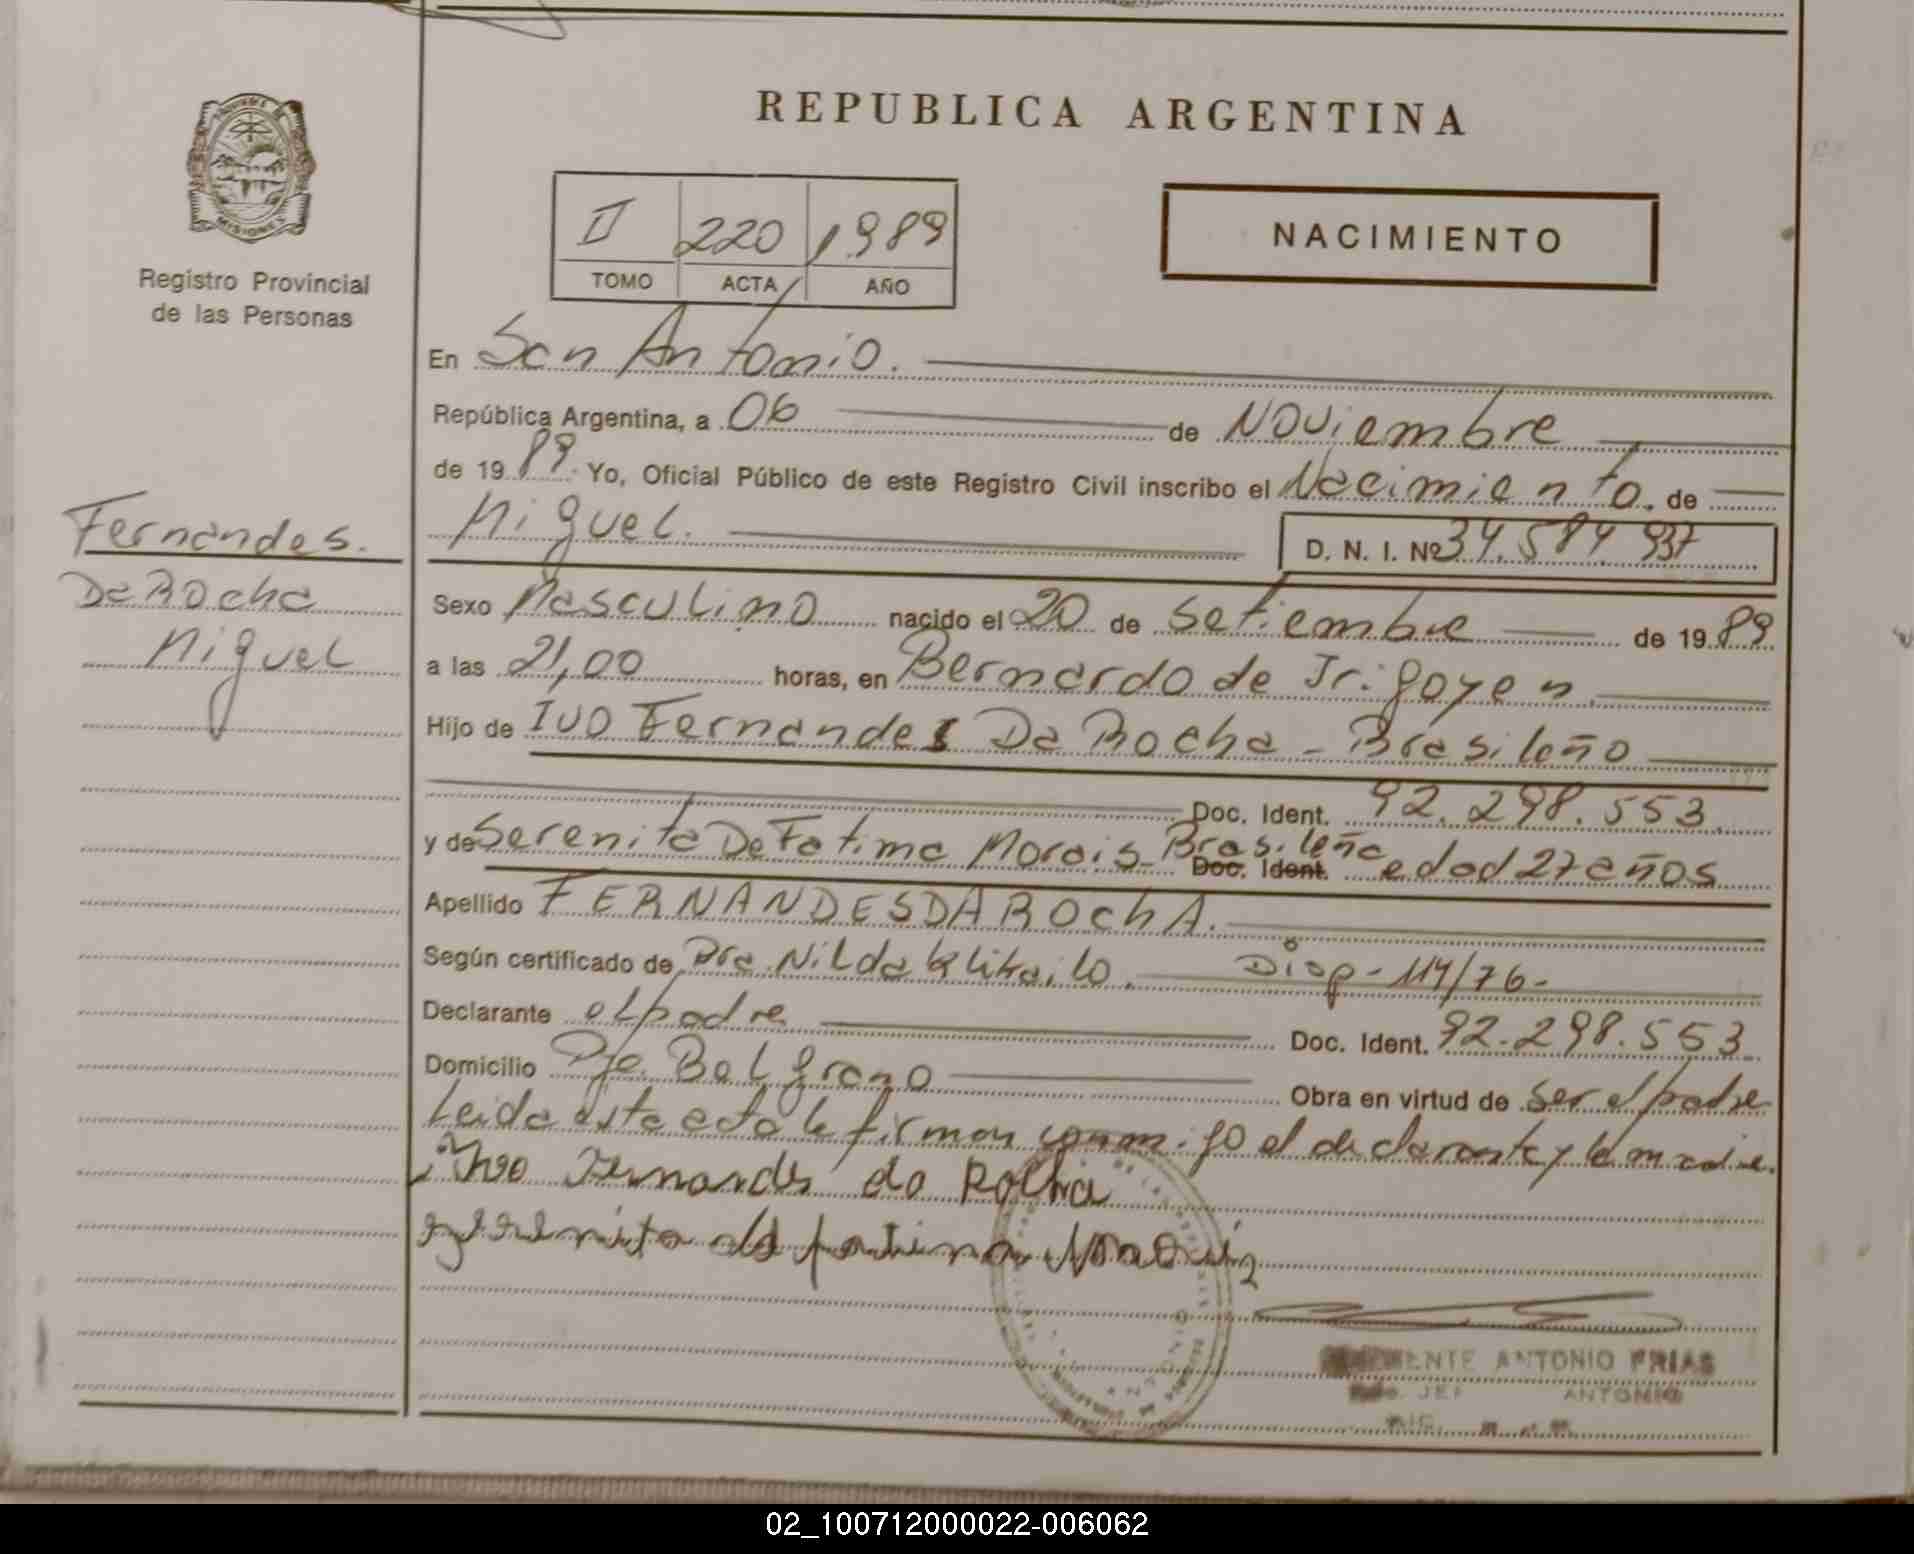 REPUBLICA ARGENTINA
MISIONES
Registro Provincial
de las Personas
II 220 1989
TOMO ACTA AÑO
NACIMIENTO
En San Antonio.
República Argentina, a 06 de Noviembre
de 1989. Yo, Oficial Público de este Registro Civil inscribo el Nacimiento. de
Miguel.
D. N. I. Nº 34.584 937
Fernandes.
Da Rocha
Miguel
Sexo Masculino nacido el 20 de Setiembre de 1989
a las 21,00 horas, en Bernardo de Irigoyen
Hijo de Ivo Fernandes Da Rocha - Brasileño
Doc. Ident. 92.298.553
y de Serenita De Fatima Morais - Brasileña
Doc. Ident. edad 27 años
Apellido FERNANDES DA ROchA.
Según certificado de Dra. Nilda Disp - 114/76-
Declarante el padre Doc. Ident. 92.298.553
Domicilio Pje. Belgrano Obra en virtud de ser el padre
Leida esta acta la firman conmigo el declarante y la madre.
Ivo Fernandes da Rocha
serenita de fatima Morais
ANTONIO FRIAS
JEF ANTONIO
02_100712000022-006062